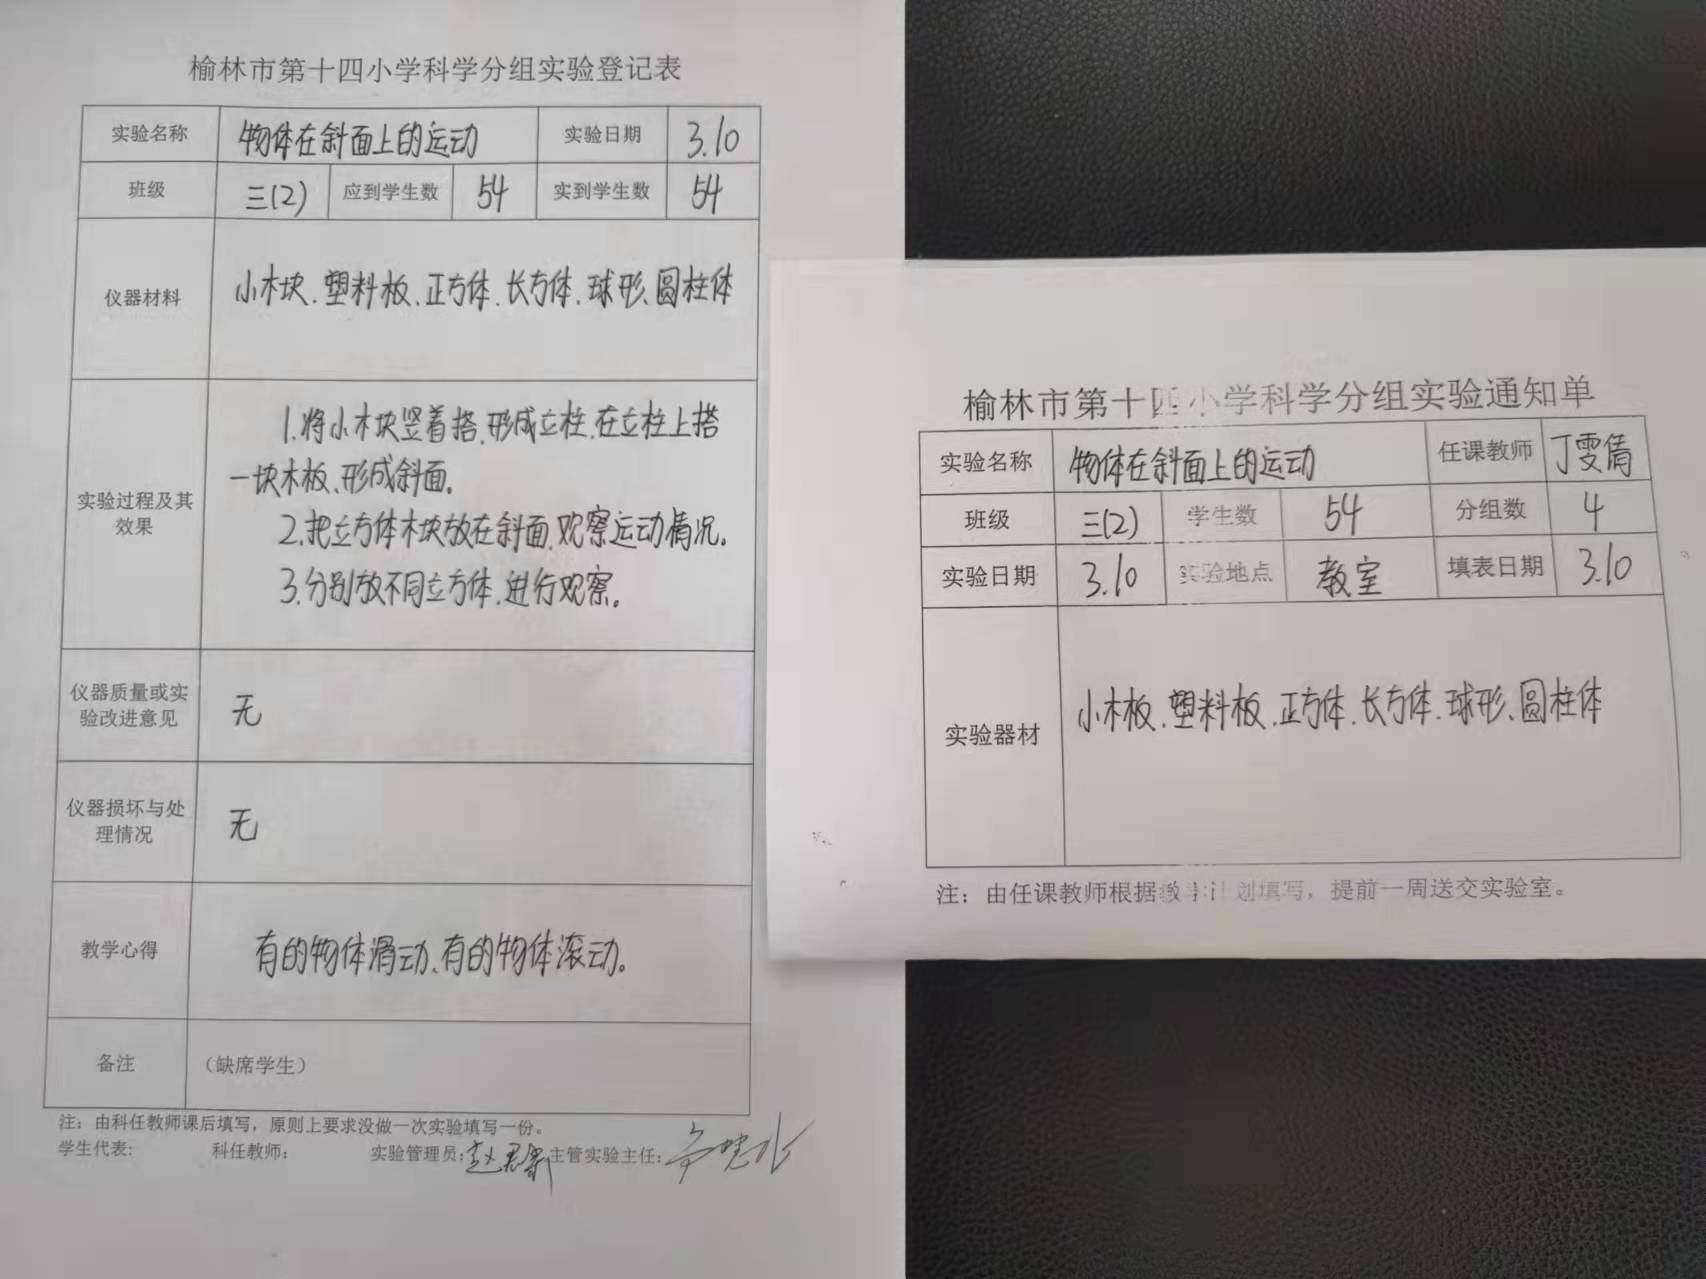 榆林市第十四小学科学分组实验登记表
实验名称 物体在斜面上的运动 实验日期 3.10
班级 三(2) 应到学生数 54 实到学生数 54
仪器材料 小木块、塑料板、正方体、长方体、球形、圆柱体
实验过程及其
效果
1.将小木块竖着搭,形成立柱,在立柱上搭
一块木板、形成斜面。
2.把立方体木块放在斜面,观察运动情况。
3.分别放不同立方体,进行观察。
仪器质量或实
验改进意见
无
仪器损坏与处
理情况
无
教学心得 有的物体滑动、有的物体滚动。
备注 （缺席学生）
注：由科任教师课后填写，原则上要求没做一次实验填写一份。
学生代表： 科任教师： 实验管理员： 主管实验主任：
榆林市第十四小学科学分组实验通知单
实验名称 物体在斜面上的运动 任课教师 丁雯倩
班级 三(2) 学生数 54 分组数 4
实验日期 3.10 实验地点 教室 填表日期 3.10
实验器材 小木板、塑料板、正方体、长方体、球形、圆柱体
注：由任课教师根据教学计划填写，提前一周送交实验室。